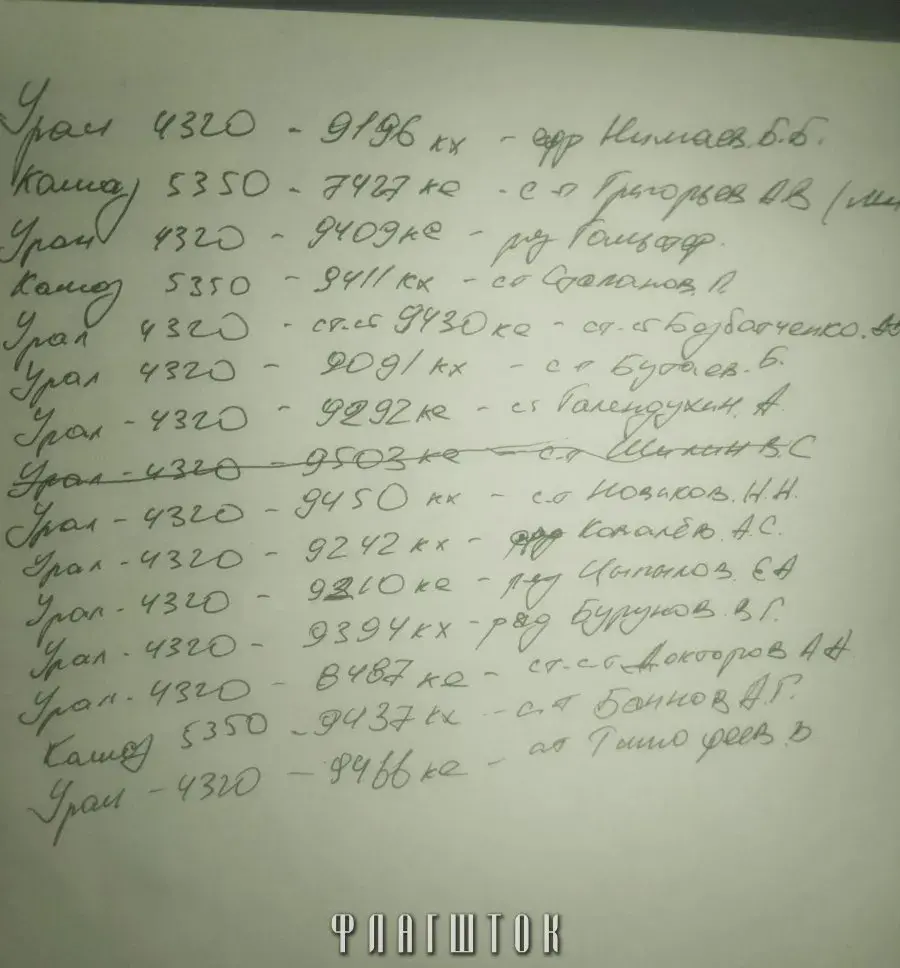 Урал 4320 - 9196 кх - Нимаев Б.Б.
Камаз 5350 - 7427 ке - с-т Григорьев АВ
Урал 4320 - 9409 ке - ряд
Камаз 5350 - 9411 кх - ст Степанов П
Урал 4320 - ст.ст 9430 ке - ст.ст Безбатченко.
Урал 4320 - 9091 кх - с-т Бутаев. Б.
Урал - 4320 - 9292 ке - ст Галендухин. А
Урал - 4320 - 9503 ке - с.т Шилин В.С
Урал - 4320 - 9450 кх - с.т Новиков. Н.Н.
Урал - 4320 - 9242 кх - ряд Ковалёв. А.С.
Урал - 4320 - 9310 ке - ряд Цыпылов. ЕА
Урал - 4320 - 9394 кх - ряд Бурунов. В Г.
Урал - 4320 - 8487 ке - ст.с-т Докторов А А
Камаз 5350 - 9437 кх - с.т Баннов А.Г.
Урал - 4320 - 9466 ке - Тимофеев.
ФЛАГШТОК